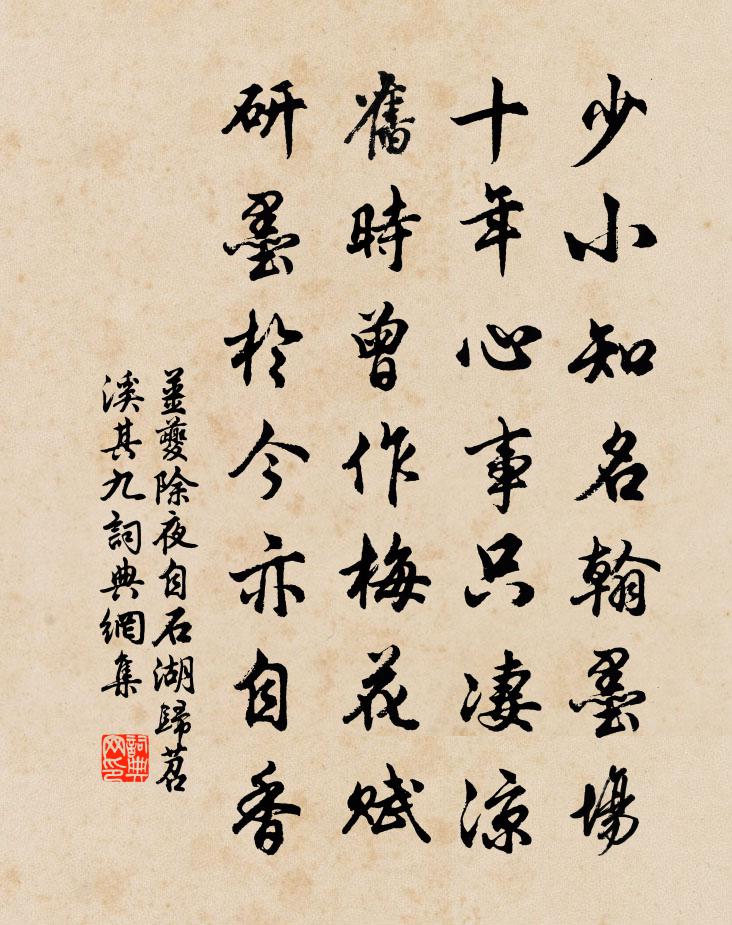 少小知名翰墨場
十年心事只凄凉
舊時曾作梅花賦
研墨於今亦自香
姜夔除夜自石湖歸苕
溪其九詞典網集
詞典网印